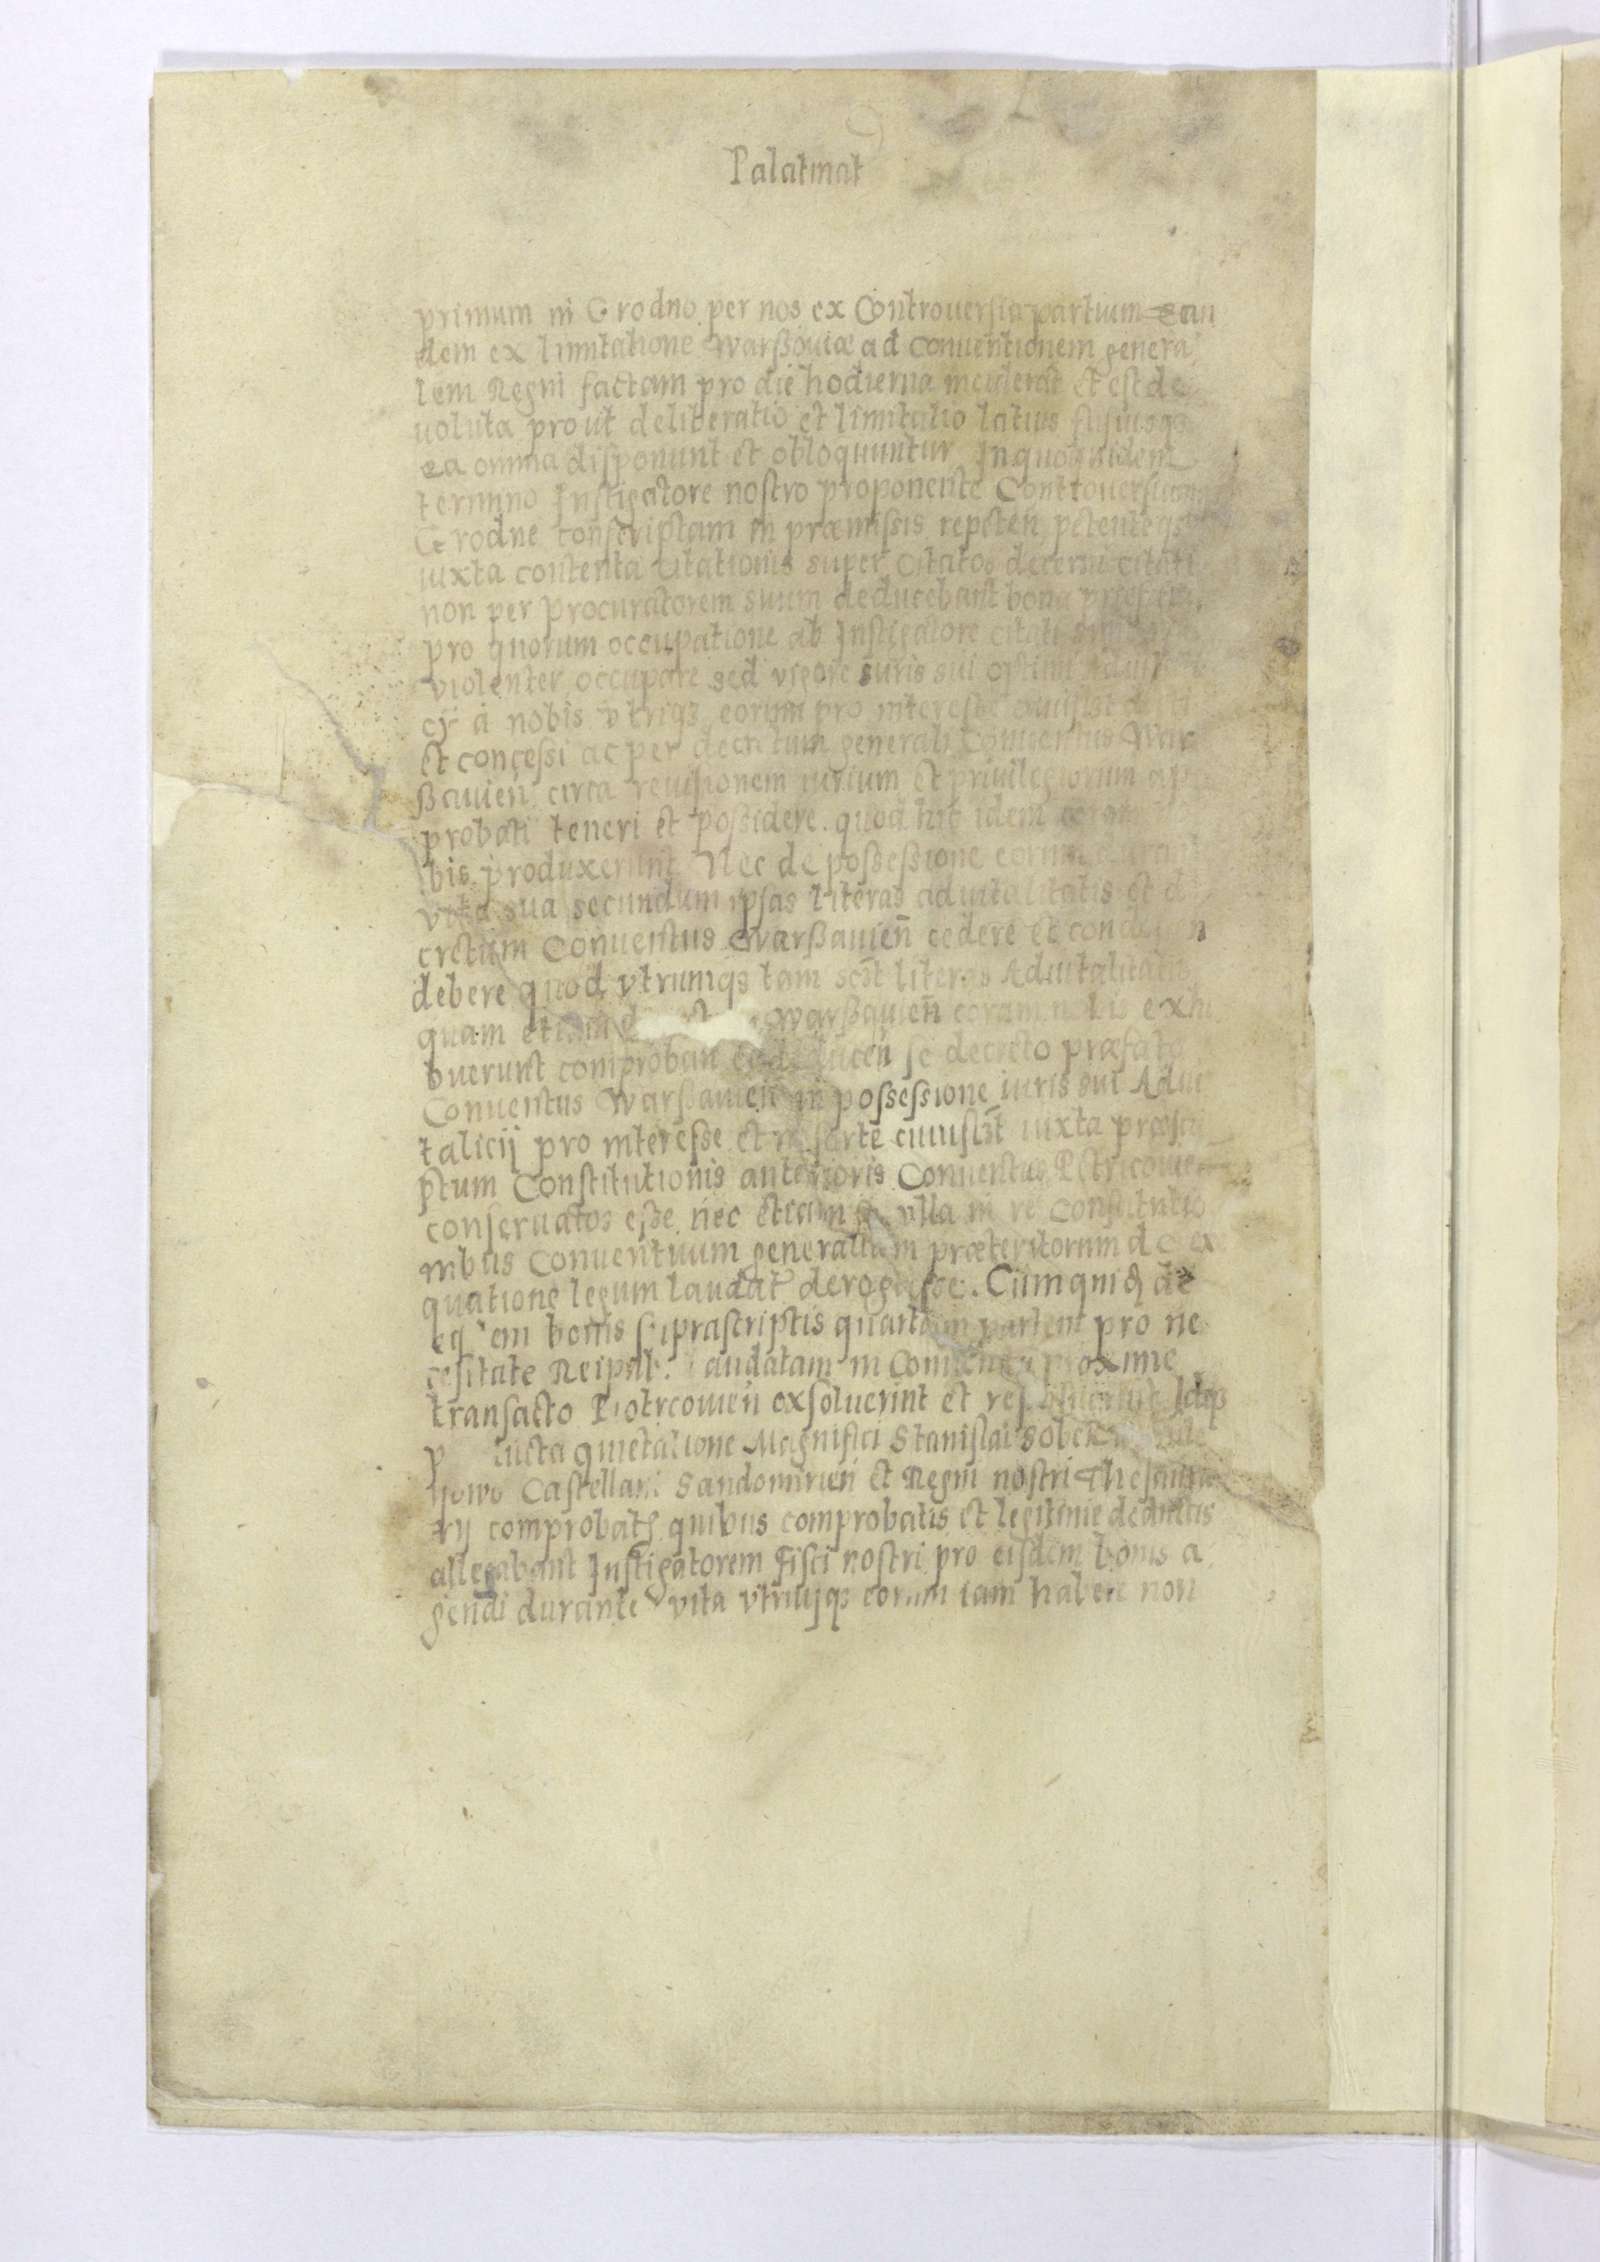 Palatinat
primum in Grodno per nos ex Controuersia partium ean
dem ex limitatione Warßouiæ ad Conuentionem genera
lem Regni factam pro die hodierna inciderat et est de
uoluta prout deliberatio et limitatio latius
ea omnia disponunt et obloquuntur In quo quidem
termino Instigatore nostro proponente Controuersiam
Grodne conscriptam in præmissis repeten petenteqз
iuxta contenta Citationis super Citatos decerni citati
non per Procuratorem suum deducebant bona
pro quorum occupatione ab Instigatore citati
violenter occupare sed vigore iuris sui
cÿ a nobis vtriqз eorum pro interesse
et concessi ac per decretum generali Conuentus War
ßauien circa reuisionem iurium et priuilegiorum ap
probati teneri et poßidere quod hic idem coram
bis produxerunt Nec de possessione eorum
vita sua secundum ipsas literas aduitalitatis et d
cretum Conuentus Warßauien cedere et
debere quod vtrumqз tam sct literas Aduitalitatis
quam etiam Warßauien coram nobis exhi
buerunt comproban se decreto præfato
Conuentus Warßauien in possessione iuris sui Adui
talicij pro interesse et sorte cuiuslibet iuxta præscri
ptum Constitutionis anterioris Conuentus Petricouien
conseruatos esse nec etiam vlla in re Constitutio
nibus Conuentuum generalium præteritorum de ex
quatione legum laudat derogasse. Cum quid de
eisdem bonis supra scriptis quartam partem pro ne
cesitate Reipub. laudatam in Conuentu proxime
transacto Piotrcouien exsoluerint et Idqз
iucta quietatione Magnifici Stanislai Sobek
Castellani Sandomirien et Regni nostri Thesaura
rij comprobat quibus comprobatis et legitime deductis
allegabant Instigatorem Fisci nostri pro eisdem bonis a
gendi durante vita vtriusqз eorum iam habere non